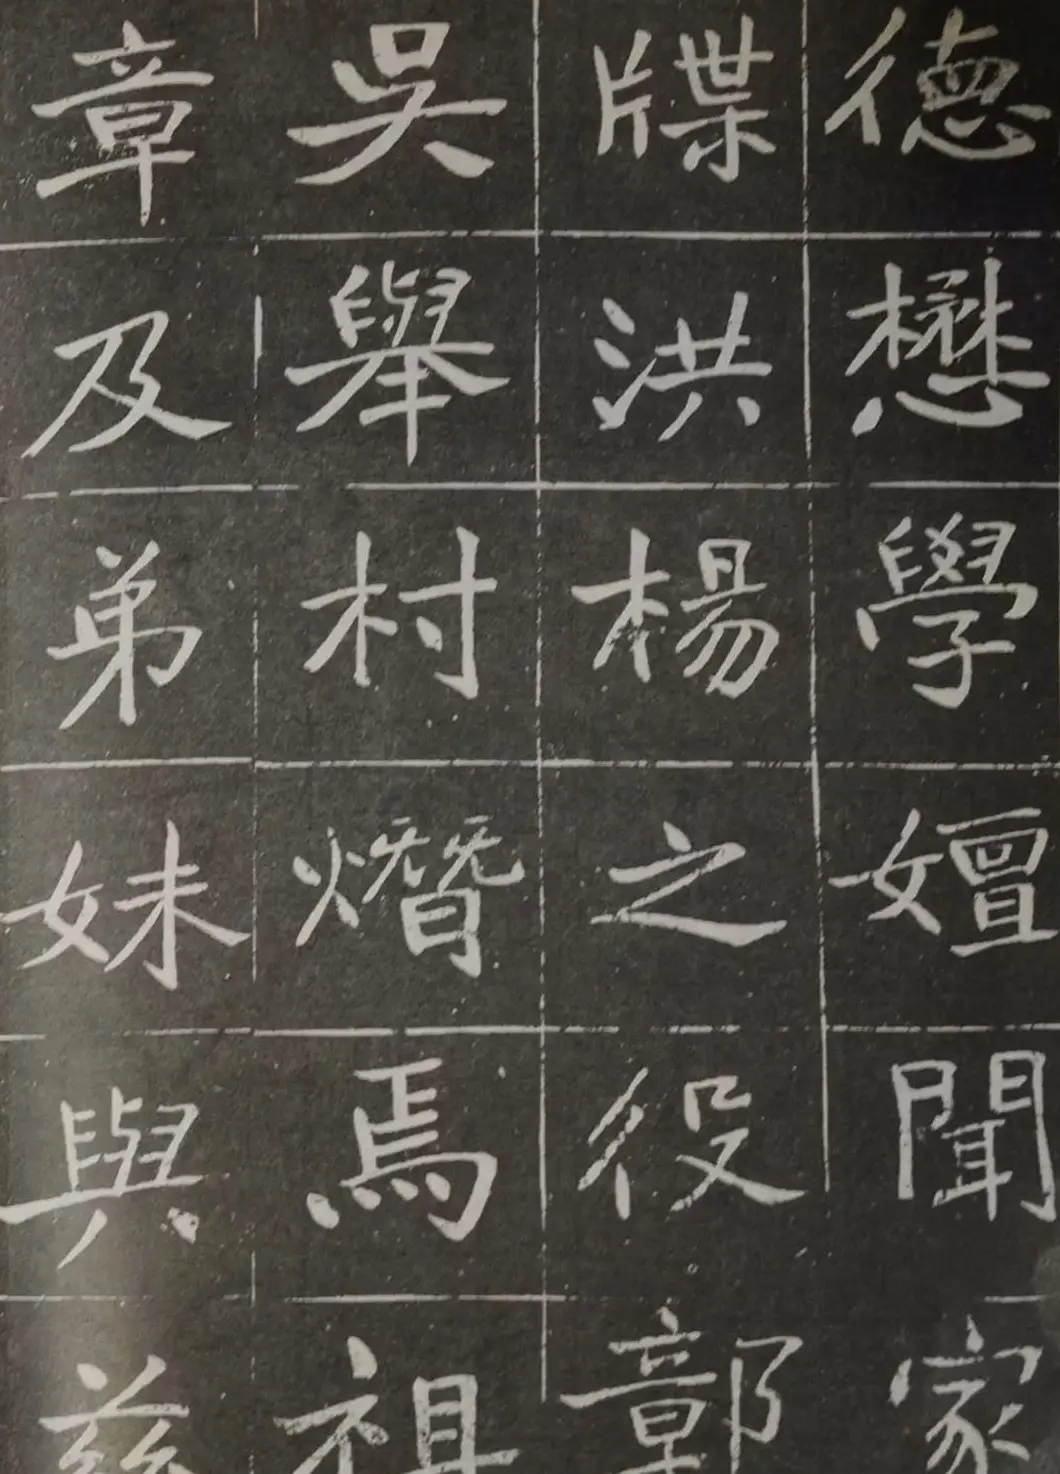 德懋學嬗聞家
牒洪楊之役鄣
吳舉村熸焉祖
章及弟妹與慈